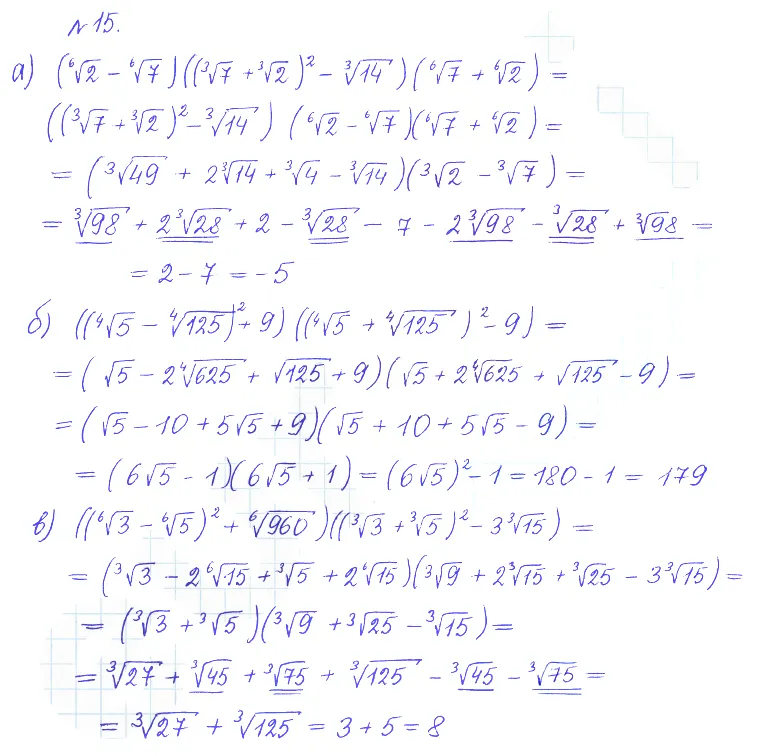 № 15.
а) (⁶√2 − ⁶√7)((³√7 + ³√2)² − ³√14)(⁶√7 + ⁶√2) =
((³√7 + ³√2)² − ³√14) (⁶√2 − ⁶√7)(⁶√7 + ⁶√2) =
= (³√49 + 2³√14 + ³√4 − ³√14)(³√2 − ³√7) =
= ³√98 + 2³√28 + 2 − ³√28 − 7 − 2³√98 − ³√28 + ³√98 =
= 2 − 7 = −5
б) ((⁴√5 − ⁴√125)² + 9)((⁴√5 + ⁴√125)² − 9) =
= (√5 − 2⁴√625 + √125 + 9)(√5 + 2⁴√625 + √125 − 9) =
= (√5 − 10 + 5√5 + 9)(√5 + 10 + 5√5 − 9) =
= (6√5 − 1)(6√5 + 1) = (6√5)² − 1 = 180 − 1 = 179
в) ((⁶√3 − ⁶√5)² + ⁶√960)((³√3 + ³√5)² − 3³√15) =
= (³√3 − 2⁶√15 + ³√5 + 2⁶√15)(³√9 + 2³√15 + ³√25 − 3³√15) =
= (³√3 + ³√5)(³√9 + ³√25 − ³√15) =
= ³√27 + ³√45 + ³√75 + ³√125 − ³√45 − ³√75 =
= ³√27 + ³√125 = 3 + 5 = 8